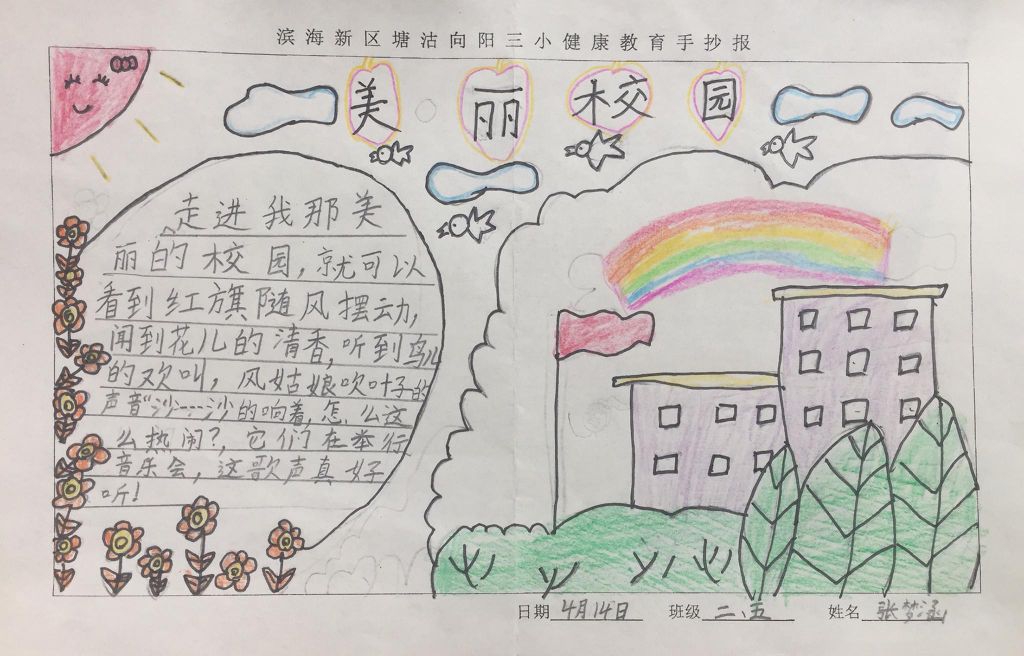 滨海新区塘沽向阳三小健康教育手抄报
美丽校园
走进我那美
丽的校园，就可以
看到红旗随风摆动，
闻到花儿的清香，听到鸟儿
的欢叫，风姑娘吹叶子的
声音“沙---沙的响着，怎么这
么热闹？，它们在举行
音乐会，这歌声真好
听！
日期 4月14日 班级 二、五 姓名 张梦涵